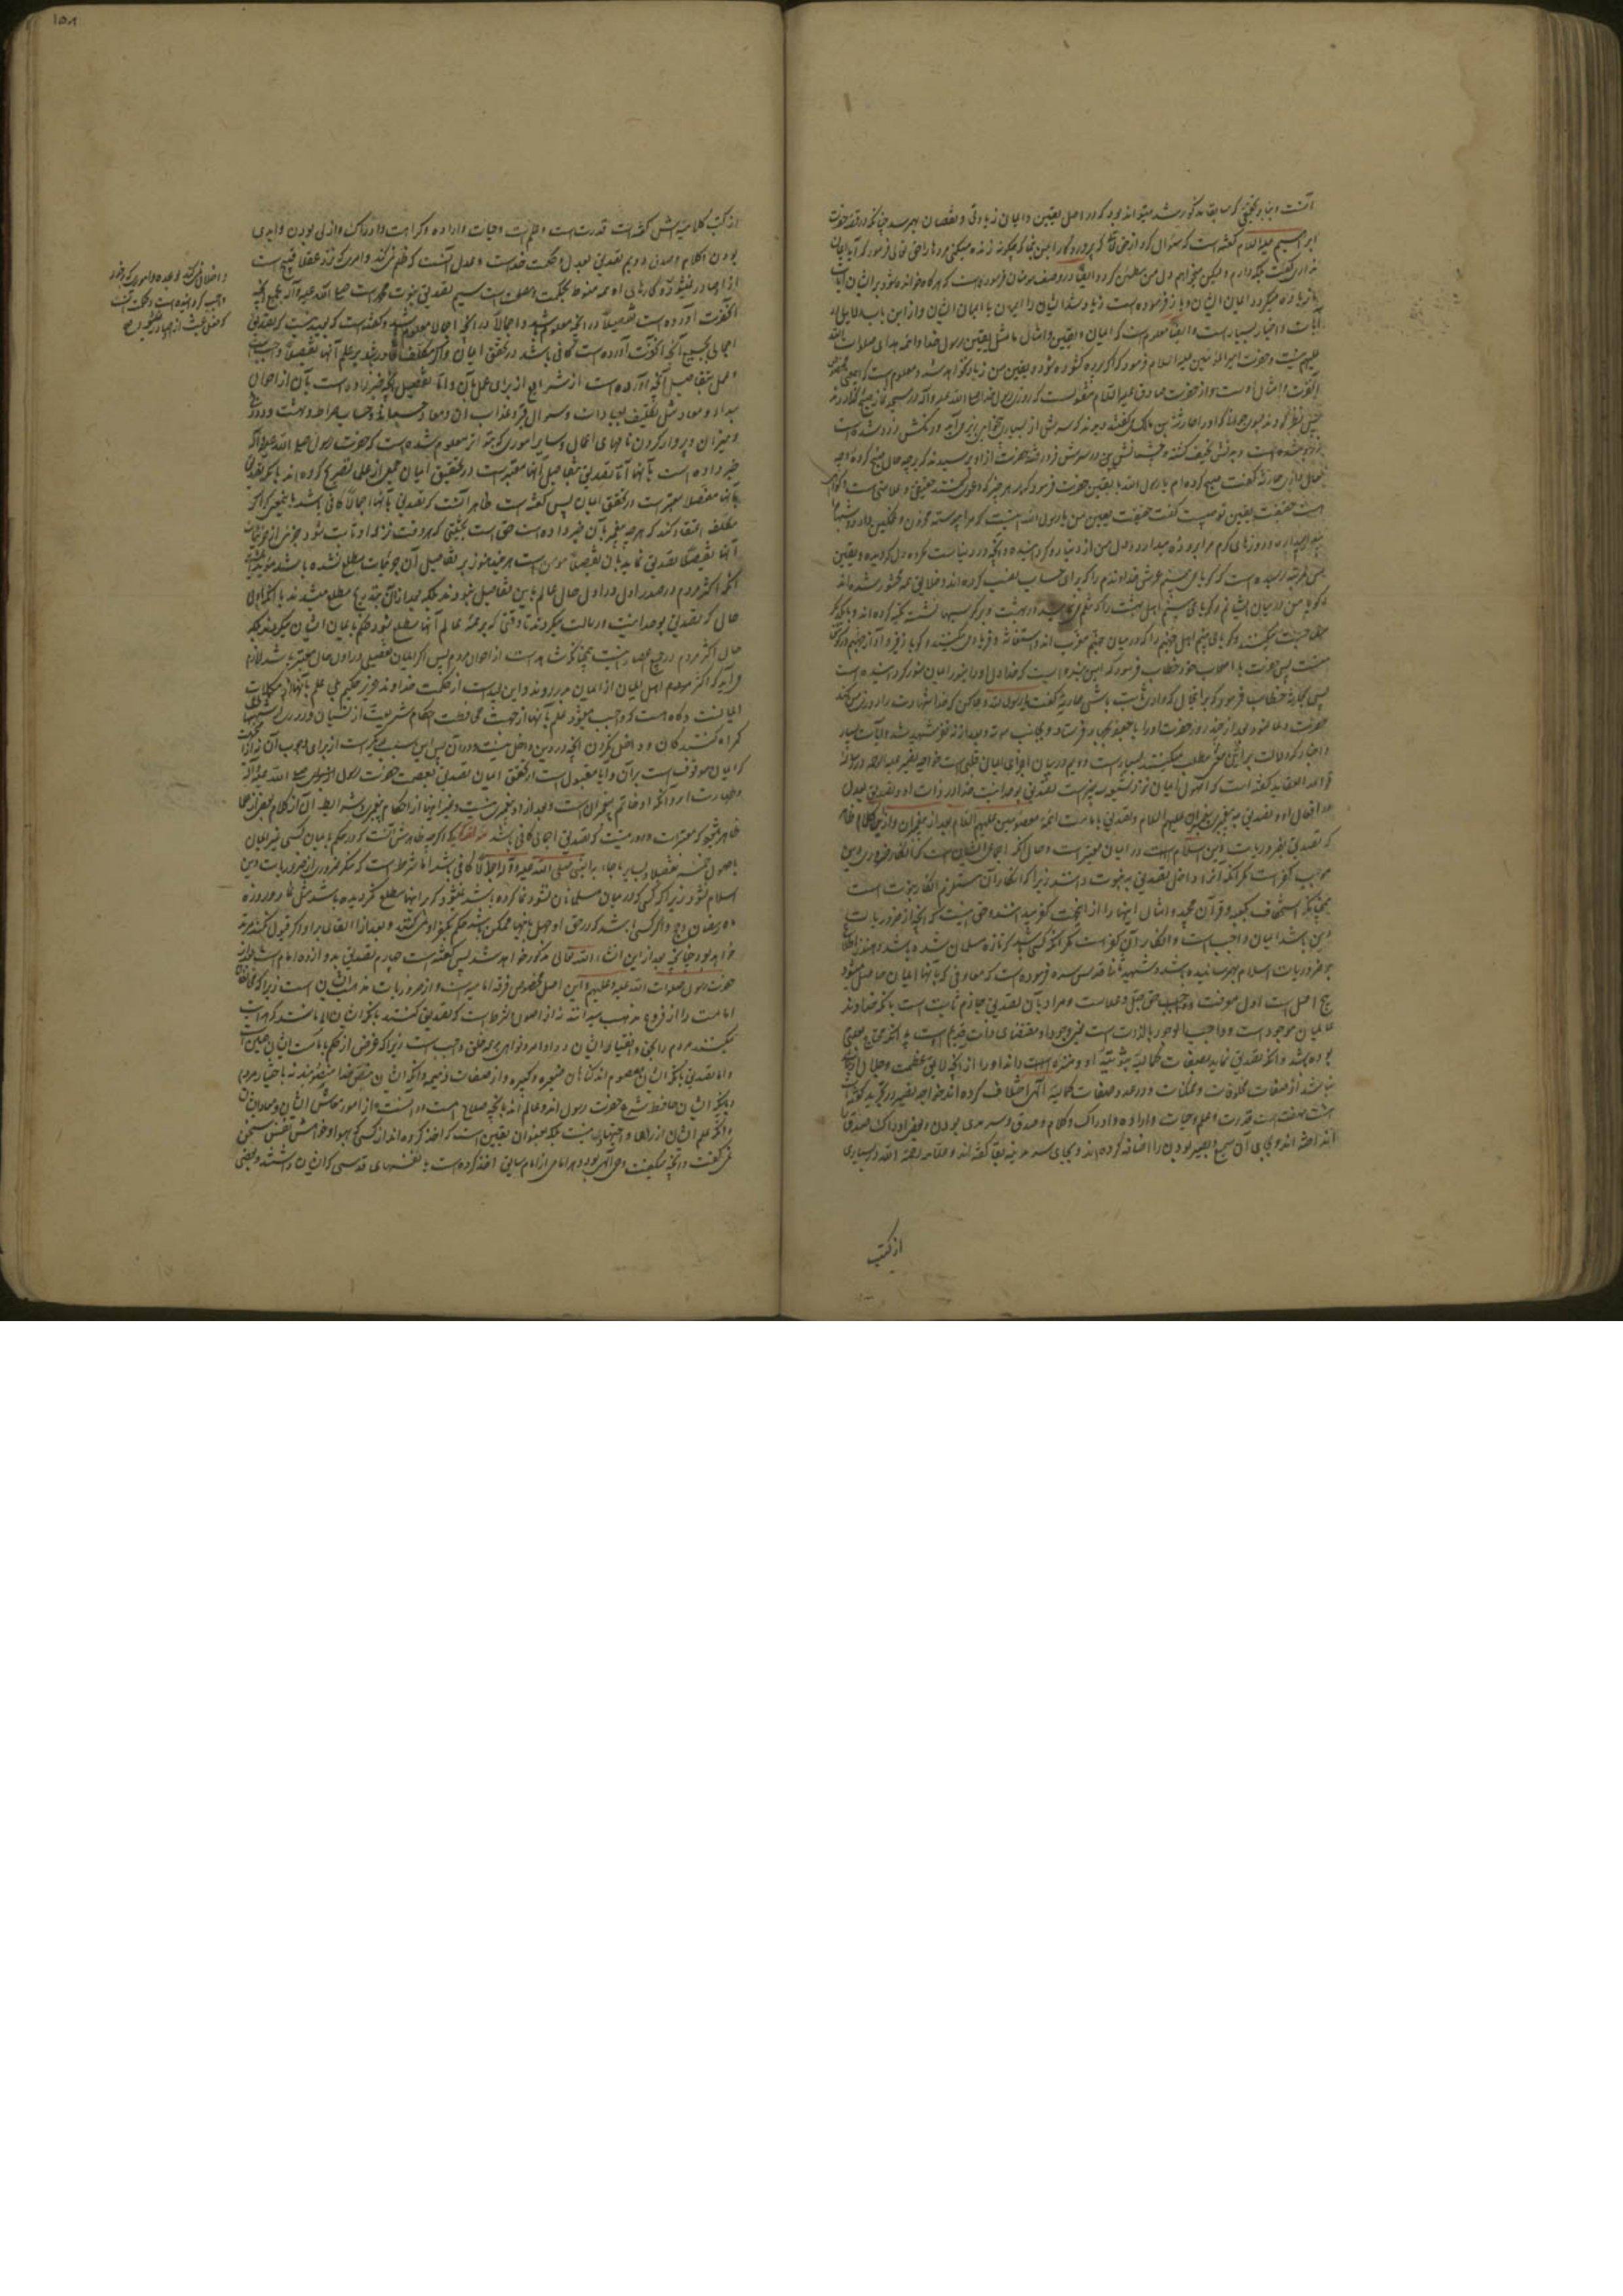 آنست و بنابر تحقیقی که سابقا مذکور شد میتواند بود که در اصل یقین و ایمان زیادتی و نقصان بهم رسد چنانکه در قصه حضرت
ابراهیم علیه السلام گفته است که سؤال کرد از حق تعالی که پروردگارا بمن بنما که چگونه زنده میکنی مردها را حق تعالی فرمود که آیا ایمان
نداری گفت بلکه دارم ولیکن میخواهم دل من مطمئن گردد و ایضا در وصف مؤمنان فرموده است که هرگاه خوانده میشود بر ایشان آیات
ما زیاده میگردد ایمان ایشان و باز فرموده است زیاد شد ایشان را ایمان با ایمان ایشان و از این باب
آیات و اخبار بسیار است و ایضا معلوم است که ایمان و یقین و امثال ما مثل یقین رسول خدا و ائمه هدی صلوات الله
علیهم نیست و حضرت امیر المؤمنین علیه السلام فرمود که اگر پرده گشوده شود یقین من زیاد نخواهد شد و معلوم است که
آنحضرت و امثال اوست و از حضرت صادق علیه السلام منقولست که روزی رسول خدا صلی الله علیه و آله در مسجد نماز صبح گذاردند
پس نظر کردند بسوی جوانی که او را حارثة بن مالک میگفتند دیدند که سرش از بسیاری بیخوابی بزیر می آید و رنگش زرد شده است
و بدنش نحیف گشته و چشمانش در سرش فرو رفته حضرت از او پرسیدند که بر چه حال صبح کرده و چه
حال داری حارثه گفت صبح کرده ام یا رسول الله با یقین حضرت فرمود که بر هر چیز که دعوی کنند حقیقتی و علامتی است
حقیقت یقین تو چیست گفت حقیقت یقین من یا رسول الله اینست که مرا پیوسته محزون و غمگین دارد و شبها
بیدار میدارد و روزهای گرم مرا بروزه میدارد و دل من از دنیا رو گردانیده و آنچه در دنیاست مکروه دل من گردیده و یقین
من بمرتبه رسیده است که گویا می بینم عرش خداوندم را که برای حساب نصب کرده اند و خلایق همه محشور شده اند
و گویا من در میان ایشانم و گویا می بینم اهل بهشت را که تنعم مینمایند در بهشت و بر کرسیها نشسته تکیه کرده اند و با یکدیگر
صحبت میکنند و گویا می بینم اهل جهنم را که در میان جهنم معذب اند و استغاثه و فریاد میکنند و گویا زفیر و آواز جهنم در گوش
منست پس حضرت با اصحاب خود خطاب فرمود که این بنده ایست که خدا دل او را بنور ایمان منور گردانیده است
پس بحارثه خطاب فرمود که بر این حال که داری ثابت باش حارثه گفت یا رسول الله دعا کن که خدا شهادت را روزی من کند
حضرت دعا نمود بعد از چند روز حضرت او را با جعفر بجهاد فرستاد و بجانب موته و بعد از نه نفر شهید شد و آیات بسیار
و اخبار که دلالت بر این مطلب میکنند بسیار است دویم در بیان اجزای ایمان قلبی است خواجه نصیر علیه الرحمه در رساله
قواعد العقاید گفته است که اصول ایمان نزد شیعه سه چیز است تصدیق بوحدانیت خدا در ذات او و تصدیق بعدل
در افعال او و تصدیق به پیغمبری پیغمبران علیهم السلام و تصدیق بامامت ائمه معصومین علیهم السلام بعد از پیغمبران و از این کلام ظاهر
که تصدیق بضروریات دین اسلام در ایمان معتبر است و حال آنکه اجماعی ایشان است که انکار ضروری دین
موجب کفر است مگر آنکه آنرا داخل تصدیق به نبوت دانند زیرا که انکار آن مستلزم انکار نبوت است
همچنانکه استخفاف بکعبه و قرآن مجید و امثال اینها را از اینجهت کفر میدانند و حق اینست که آنچه از ضروریات
دین باشد ایمان بآن واجب است و انکار آن کفر است مگر آنکه کسی باشد که تازه مسلمان شده باشد و هنوز اطلاع
بر ضروریات اسلام بهم نرسانیده باشد و شهید ثانی قدس سره فرموده است که معارفی که بآنها ایمان حاصل میشود
پنج اصل است اول معرفت واجب حق جل و علاست و مراد بآن تصدیق جازم ثابت است بآنکه خداوند
عالمیان موجود است و واجب الوجود بالذات است یعنی وجود او مقتضای ذات
بوده باشد و آنکه تصدیق نماید بصفات کمالیه ثبوتیه او و منزه داند او را از آنچه لایق عظمت و جلال او
نباشد از صفات مخلوقات و ممکنات و در عدد صفات کمالیه الهی اختلاف کرده اند خواجه نصیر در تجرید گفته
هشت صفت است قدرت و علم و حیات و اراده و ادراک و کلام و صدق و سرمدی بودن و بعضی ادراک و صدق را
انداخته اند و بجای آن سمیع و بصیر بودن را اضافه کرده اند و بجای سرمدیت بقا گفته اند و علامه رحمه الله در بسیاری
از کتب
١٥٨
از کتب کلامیه اش گفته است قدرت است و علم است و حیات و اراده و کراهت و ادراک و ازلی بودن و ابدی
بودن و کلام و صدق دویم تصدیق بعدل و حکمت خداست و عدل آنست که ظلم نمی کند و امری که نزد عقلا قبیح است
از او صادر نمیشود و کارهای او همه منوط بحکمت و مصلحت است سیم تصدیق بنبوت محمد است صلی الله علیه و آله بجمیع آنچه
آنحضرت آورده است تفصیلا در آنچه معلوم باشد و اجمالا در آنچه اجمالا معلوم باشد و گفته است که بعید نیست که تصدیق
اجمالی بجمیع آنچه آنحضرت آورده است کافی باشد در تحقق ایمان و اگر مکلف قادر باشد بر علم آنها تفصیلا واجب است
و عمل بتفاصیل آنچه آورده است از شرایع از برای عمل بآن و اما تفصیل آنچه خبر داده است بآن از احوال
مبداء و معاد مثل تکلیف بعبادات و سؤال قبر و عذاب آن و معاد جسمانی و حساب و صراط و بهشت و دوزخ
و میزان و پرواز کردن نامهای اعمال و سایر اموری که بتواتر معلوم شده است که حضرت رسول صلی الله علیه و آله
خبر داده است بآنها آیا تصدیق بتفاصیل آنها معتبر است در تحقیق ایمان جمعی از علما تصریح کرده اند بآنکه تصدیق
بآنها مفصلا معتبر است در تحقق ایمان پس گفته است ظاهر آنست که تصدیق بآنها اجمالا کافی باشد باینمعنی که اگر
مکلف اعتقاد کند که هر چه پیغمبر بآن خبر داده است حق است بحیثیتی که هر وقت نزد او ثابت شود
آنها تفصیلا تصدیق نماید بآن تفصیلا مؤمن است هر چند هنوز بر تفاصیل آن جزئیات مطلع نشده باشد
آنکه اکثر مردم در صدر اول در اول حال عالم باین تفاصیل نبودند بلکه بعد از آن بتدریج مطلع میشدند با آنکه اول
حال که تصدیق بوحدانیت و رسالت میکردند تا وقتی که بر همه عالم آنها مطلع شوند حکم بایمان ایشان میکردند بلکه
حال اکثر مردم در جمیع اعصار اینست چنانکه مشاهد است از احوال مردم پس اگر ایمان تفصیلی در اول حال معتبر باشد لازم
می آید که اکثر مردم اهل ایمان از ایمان بدر روند و این بعید است از حکمت خداوند عزیز حکیم بلی علم بآنها از مکملات
ایمانست و گاه هست که واجب میشود علم بآنها از جهت محافظت احکام شریعت از نسیان و دوری از شبههای
گمراه کنندگان و داخل نکردن آنچه در دین داخل نیست در آن پس این سببی دیگر است از برای وجوب آن نه از آنجهت
که ایمان موقوف است بر آن و آیا معتبر است در تحقق ایمان تصدیق بعصمت حضرت رسول صلی الله علیه و آله
و طهارت او و آنکه او خاتم پیغمبران است و بعد از او پیغمبری نیست و غیر اینها از احکام پیغمبری و شرایط آن از کلام بعضی از علما
ظاهر میشود که معتبر است و دور نیست که تصدیق اجمالی کافی باشد مؤلف گوید که اگر چه ظاهرش آنست که در حکم بایمان کسی غیر ایمان
باصول خمسه تفصیلا و بسایر ما جاء به النبی صلی الله علیه و آله اجمالا کافی باشد اما شرط است که منکر ضروری از ضروریات دین
اسلام نشود زیرا که کسی که در میان مسلمانان نشو و نما کرده باشد نمیشود که بر اینها مطلع نگردیده باشد مثل نماز و روزه
ماه رمضان و حج و اگر کسی باشد که در حق او جهل باینها ممکن باشد حکم بکفر او نمی کنند و بعد از القای بر او اگر قبول نکند مرتد
خواهد بود چنانچه بعد از این انشاء الله تعالی مذکور خواهد شد پس گفته است چهارم تصدیق به دوازده امام است
حضرت رسول صلوات الله علیه و علیهم و این اصل مخصوص فرقه امامیه است و از ضروریات مذهب ایشان است زیرا که
امامت را از فروع مذهب میدانند نه از اصول و شرط است که تصدیق کنند بآنکه ایشان امامانند که هدایت
میکنند مردم را بحق و انقیاد ایشان در اوامر و نواهی بر همه خلق واجب است زیرا که غرض از حکم بامامت ایشان همین است
و اما تصدیق بآنکه ایشان معصوم اند از گناهان صغیره و کبیره و از صفات ذمیمه و آنکه ایشان بنص خدا منصوبند نه باختیار مردم
و بآنکه ایشان حافظ شرع حضرت رسول اند و عالم اند بآنچه صلاح امت در آنست از امور معاش ایشان و معاد ایشان
و آنکه علم ایشان از رای و اجتهاد نیست بلکه بعنوان یقین است که اخذ کرده اند از کسی که بهوا و خواهش نفس سخن
نمی گفت و آنچه میگفت وحی الهی بود و هر امامی از امام سابق اخذ کرده است با نفسهای قدسی که ایشان داشتند و بعضی
و اخلال نمی کند
واجب گردانیده است و حکمت آنست
که فعل عبث از او صادر نمیشود